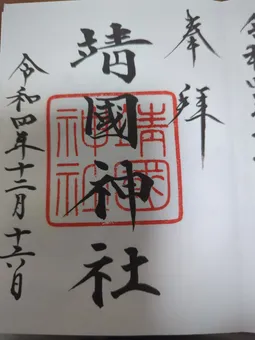 奉拝
靖國神社
靖国神社
令和四年十二月十六日